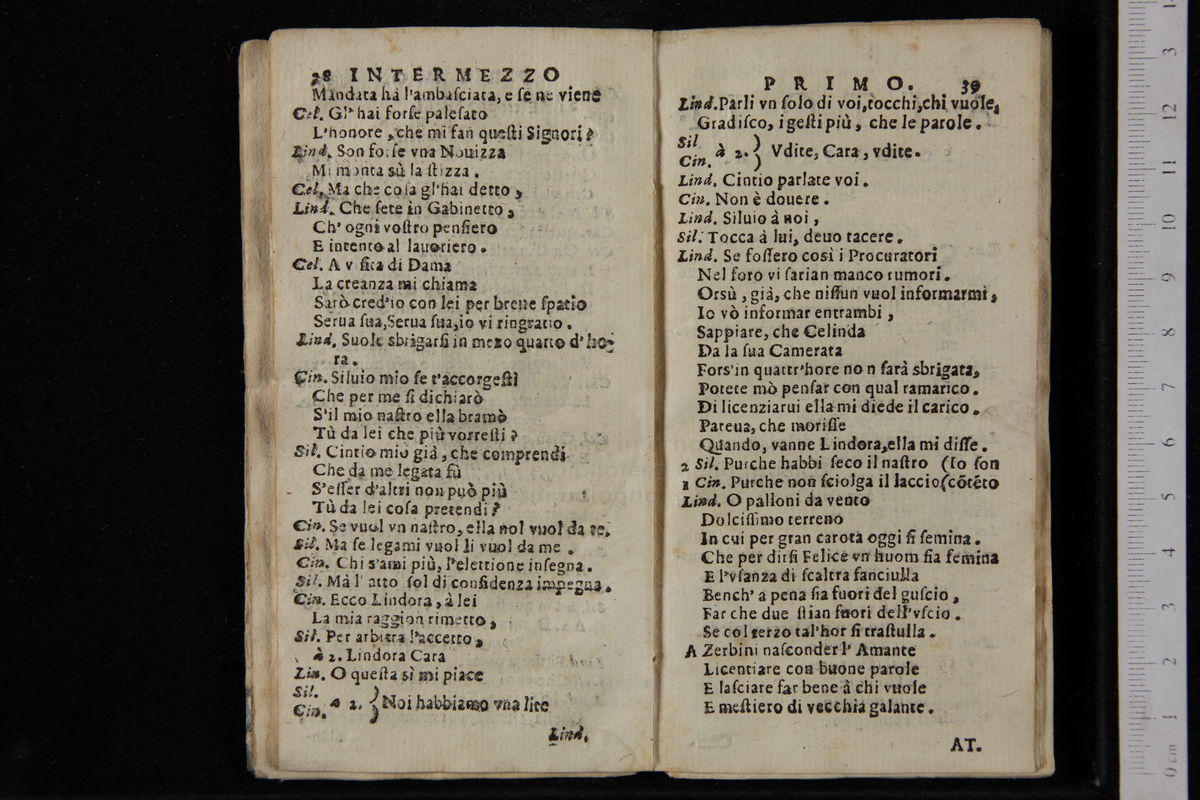 38 INTERMEZZO
Mandata hà l'ambaſciata, e ſe ne viene
Cel. Gl' hai forſe paleſato
L'honore, che mi fan queſti Signori?
Lind. Son forſe vna Nouizza
Mi monta sù la ſtizza.
Cel. Ma che coſa gl'hai detto,
Lind. Che ſete in Gabinetto,
Ch' ogni voſtro penſiero
E intento al lauoriero.
Cel. A viſita di Dama
La creanza mi chiama
Sarò cred'io con lei per breue ſpatio
Serua ſua, Serua ſua, io vi ringratio.
Lind. Suole sbrigarſi in mezo quarto d'ho-
ra.
Cin. Siluio mio ſe t'accorgeſti
Che per me ſi dichiarò
S'il mio naſtro ella bramò
Tù da lei che più vorreſti?
Sil. Cintio mio già, che comprendi
Che da me legata fù
S'eſſer d'altri non può più
Tù da lei coſa pretendi?
Cin. Se vuol vn naſtro, ella nol vuol da te.
Sil. Ma ſe legami vuol li vuol da me.
Cin. Chi s'ami più, l'elettione inſegna.
Sil. Mà l'atto ſol di confidenza impegna.
Cin. Ecco Lindora, à lei
La mia raggion rimetto,
Sil. Per arbitra l'accetto,
à 2. Lindora Cara
Lin. O queſta sì mi piace
Sil.
Cin. à 2. } Noi habbiamo vna lite
Lind.
PRIMO. 39
Lind. Parli vn ſolo di voi, tocchi, chi vuole,
Gradiſco, i geſti più, che le parole.
Sil
Cin. à 2. } Vdite, Cara, vdite.
Lind. Cintio parlate voi.
Cin. Non è douere.
Lind. Siluio à noi,
Sil. Tocca à lui, deuo tacere.
Lind. Se foſſero così i Procuratori
Nel foro vi ſarian manco rumori.
Orsù, già, che niſſun vuol informarmi,
Io vò informar entrambi,
Sappiate, che Celinda
Da la ſua Camerata
Fors'in quattr'hore non ſarà sbrigata,
Potete mò penſar con qual ramarico.
Di licenziarui ella mi diede il carico.
Pareua, che moriſſe
Quando, vanne Lindora, ella mi diſſe.
2 Sil. Purche habbi ſeco il naſtro (Io ſon
2 Cin. Purche non ſciolga il laccio (cōtēto
Lind. O palloni da vento
Dolciſſimo terreno
In cui per gran carota oggi ſi ſemina.
Che per dirſi Felice vn huom ſia femina
E l'vſanza di ſcaltra fanciulla
Bench' a pena ſia fuori del guſcio,
Far che due ſtian fuori dell'vſcio.
Se col terzo tal'hor ſi traſtulla.
A Zerbini naſconder l' Amante
Licentiare con buone parole
E laſciare far bene à chi vuole
E meſtiero di vecchia galante.
AT.